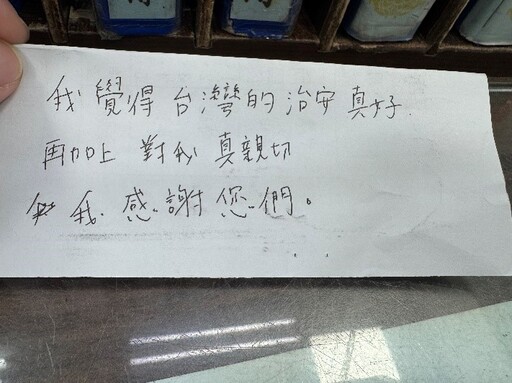 我覺得台灣的治安真好.
再加上 對我真親切
我感謝您們。